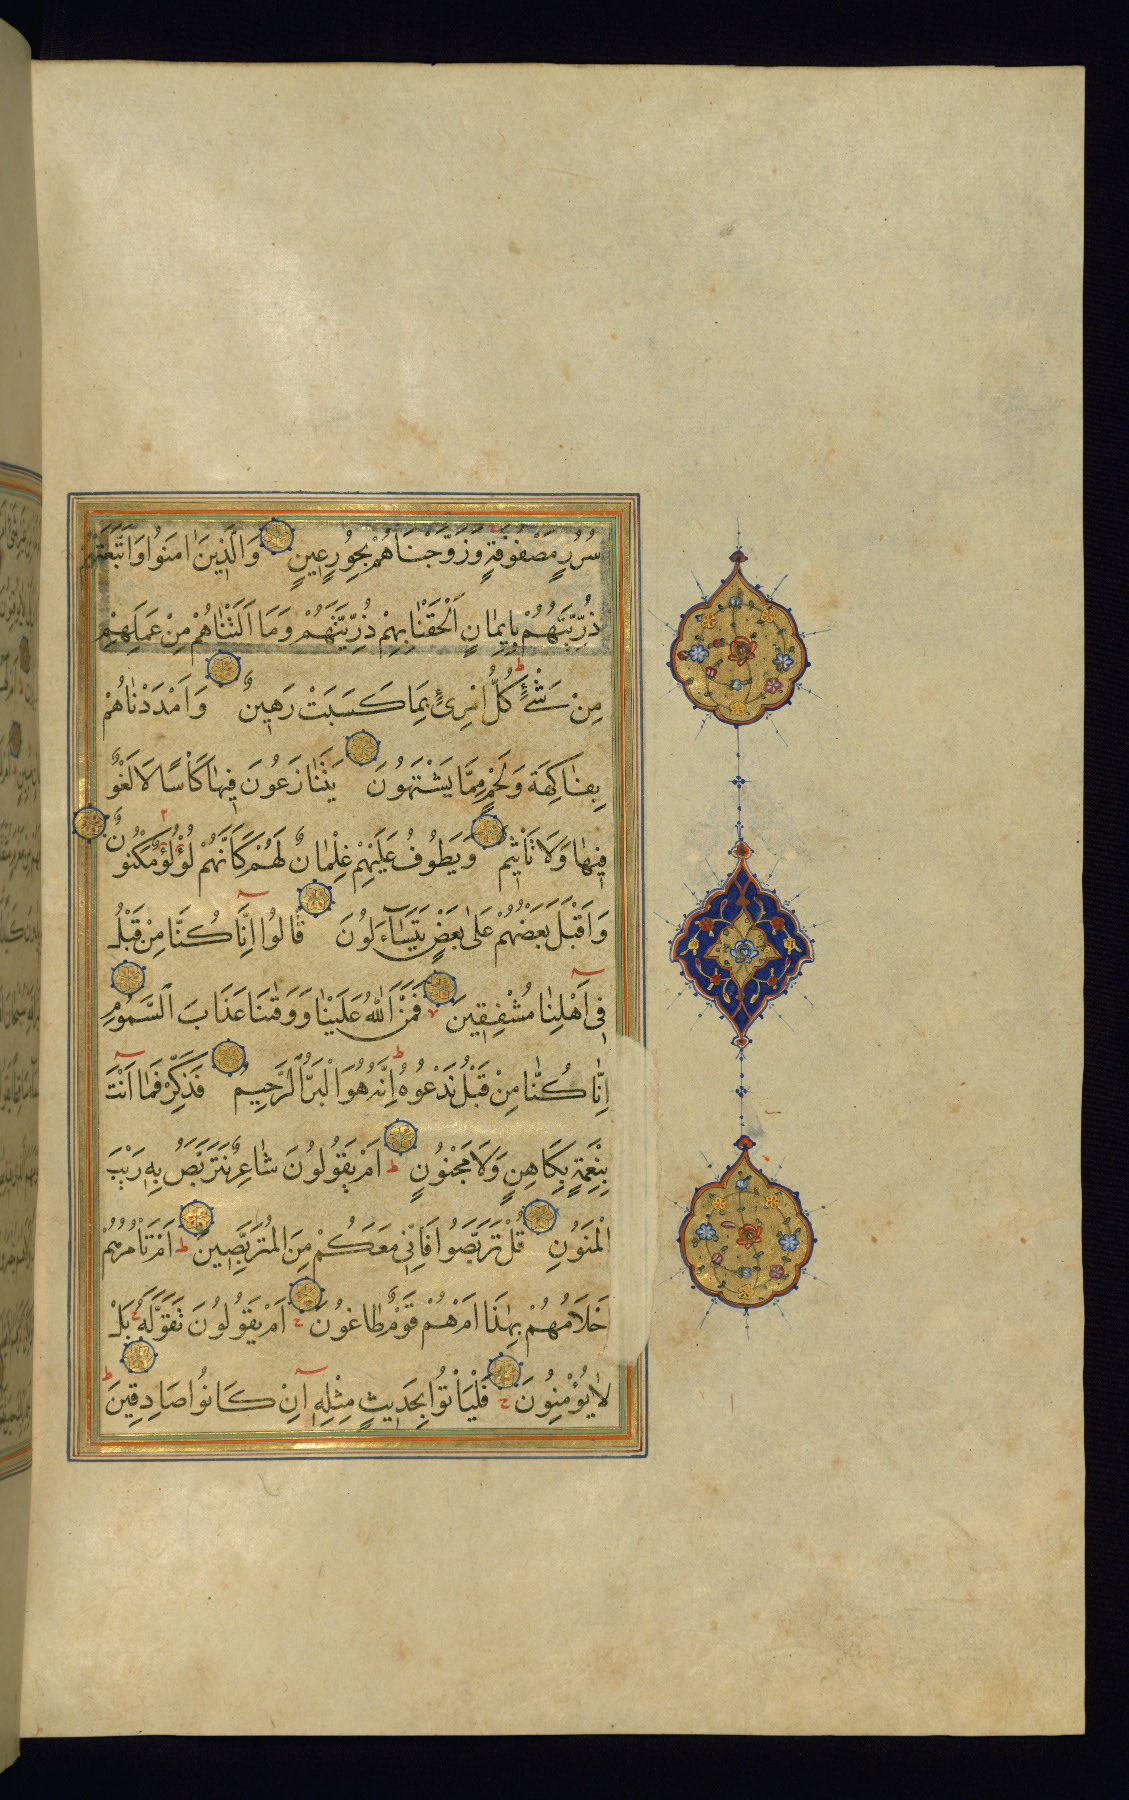 سُرُرٍ مَصْفُوفَةٍ وَزَوَّجْنَاهُمْ بِحُورٍ عِينٍ وَالَّذِينَ اٰمَنُوا وَاتَّبَعَتْهُمْ
ذُرِّيَّتُهُمْ بِإِيمَانٍ اَلْحَقْنَا بِهِمْ ذُرِّيَّتَهُمْ وَمَا اَلَتْنَاهُمْ مِنْ عَمَلِهِمْ
مِنْ شَيْءٍ كُلُّ امْرِئٍ بِمَا كَسَبَتْ رَهِينٌ وَاَمْدَدْنَاهُمْ
بِفَاكِهَةٍ وَلَحْمٍ مِمَّا يَشْتَهُونَ يَتَنَازَعُونَ فِيهَا كَأْسًا لَا لَغْوٌ
فِيهَا وَلَا تَأْثِيمٌ وَيَطُوفُ عَلَيْهِمْ غِلْمَانٌ لَهُمْ كَاَنَّهُمْ لُؤْلُؤٌ مَكْنُونٌ
وَاَقْبَلَ بَعْضُهُمْ عَلٰى بَعْضٍ يَتَسَآءَلُونَ قَالُوا اِنَّا كُنَّا مِنْ قَبْلُ
فِي اَهْلِنَا مُشْفِقِينَ فَمَنَّ اللّٰهُ عَلَيْنَا وَوَقٰنَا عَذَابَ السَّمُومِ
اِنَّا كُنَّا مِنْ قَبْلُ نَدْعُوهُ اِنَّهُ هُوَ الْبَرُّ الرَّحِيمُ فَذَكِّرْ فَمَا اَنْتَ
بِنِعْمَةِ بِكَاهِنٍ وَلَا مَجْنُونٍ اَمْ يَقُولُونَ شَاعِرٌ نَتَرَبَّصُ بِهِ رَيْبَ
الْمَنُونِ قُلْ تَرَبَّصُوا فَاِنِّي مَعَكُمْ مِنَ الْمُتَرَبِّصِينَ اَمْ تَأْمُرُهُمْ
اَحْلَامُهُمْ بِهٰذَا اَمْ هُمْ قَوْمٌ طَاغُونَ اَمْ يَقُولُونَ تَقَوَّلَهُ بَلْ
لَا يُؤْمِنُونَ فَلْيَأْتُوا بِحَدِيثٍ مِثْلِهِ اِنْ كَانُوا صَادِقِينَ